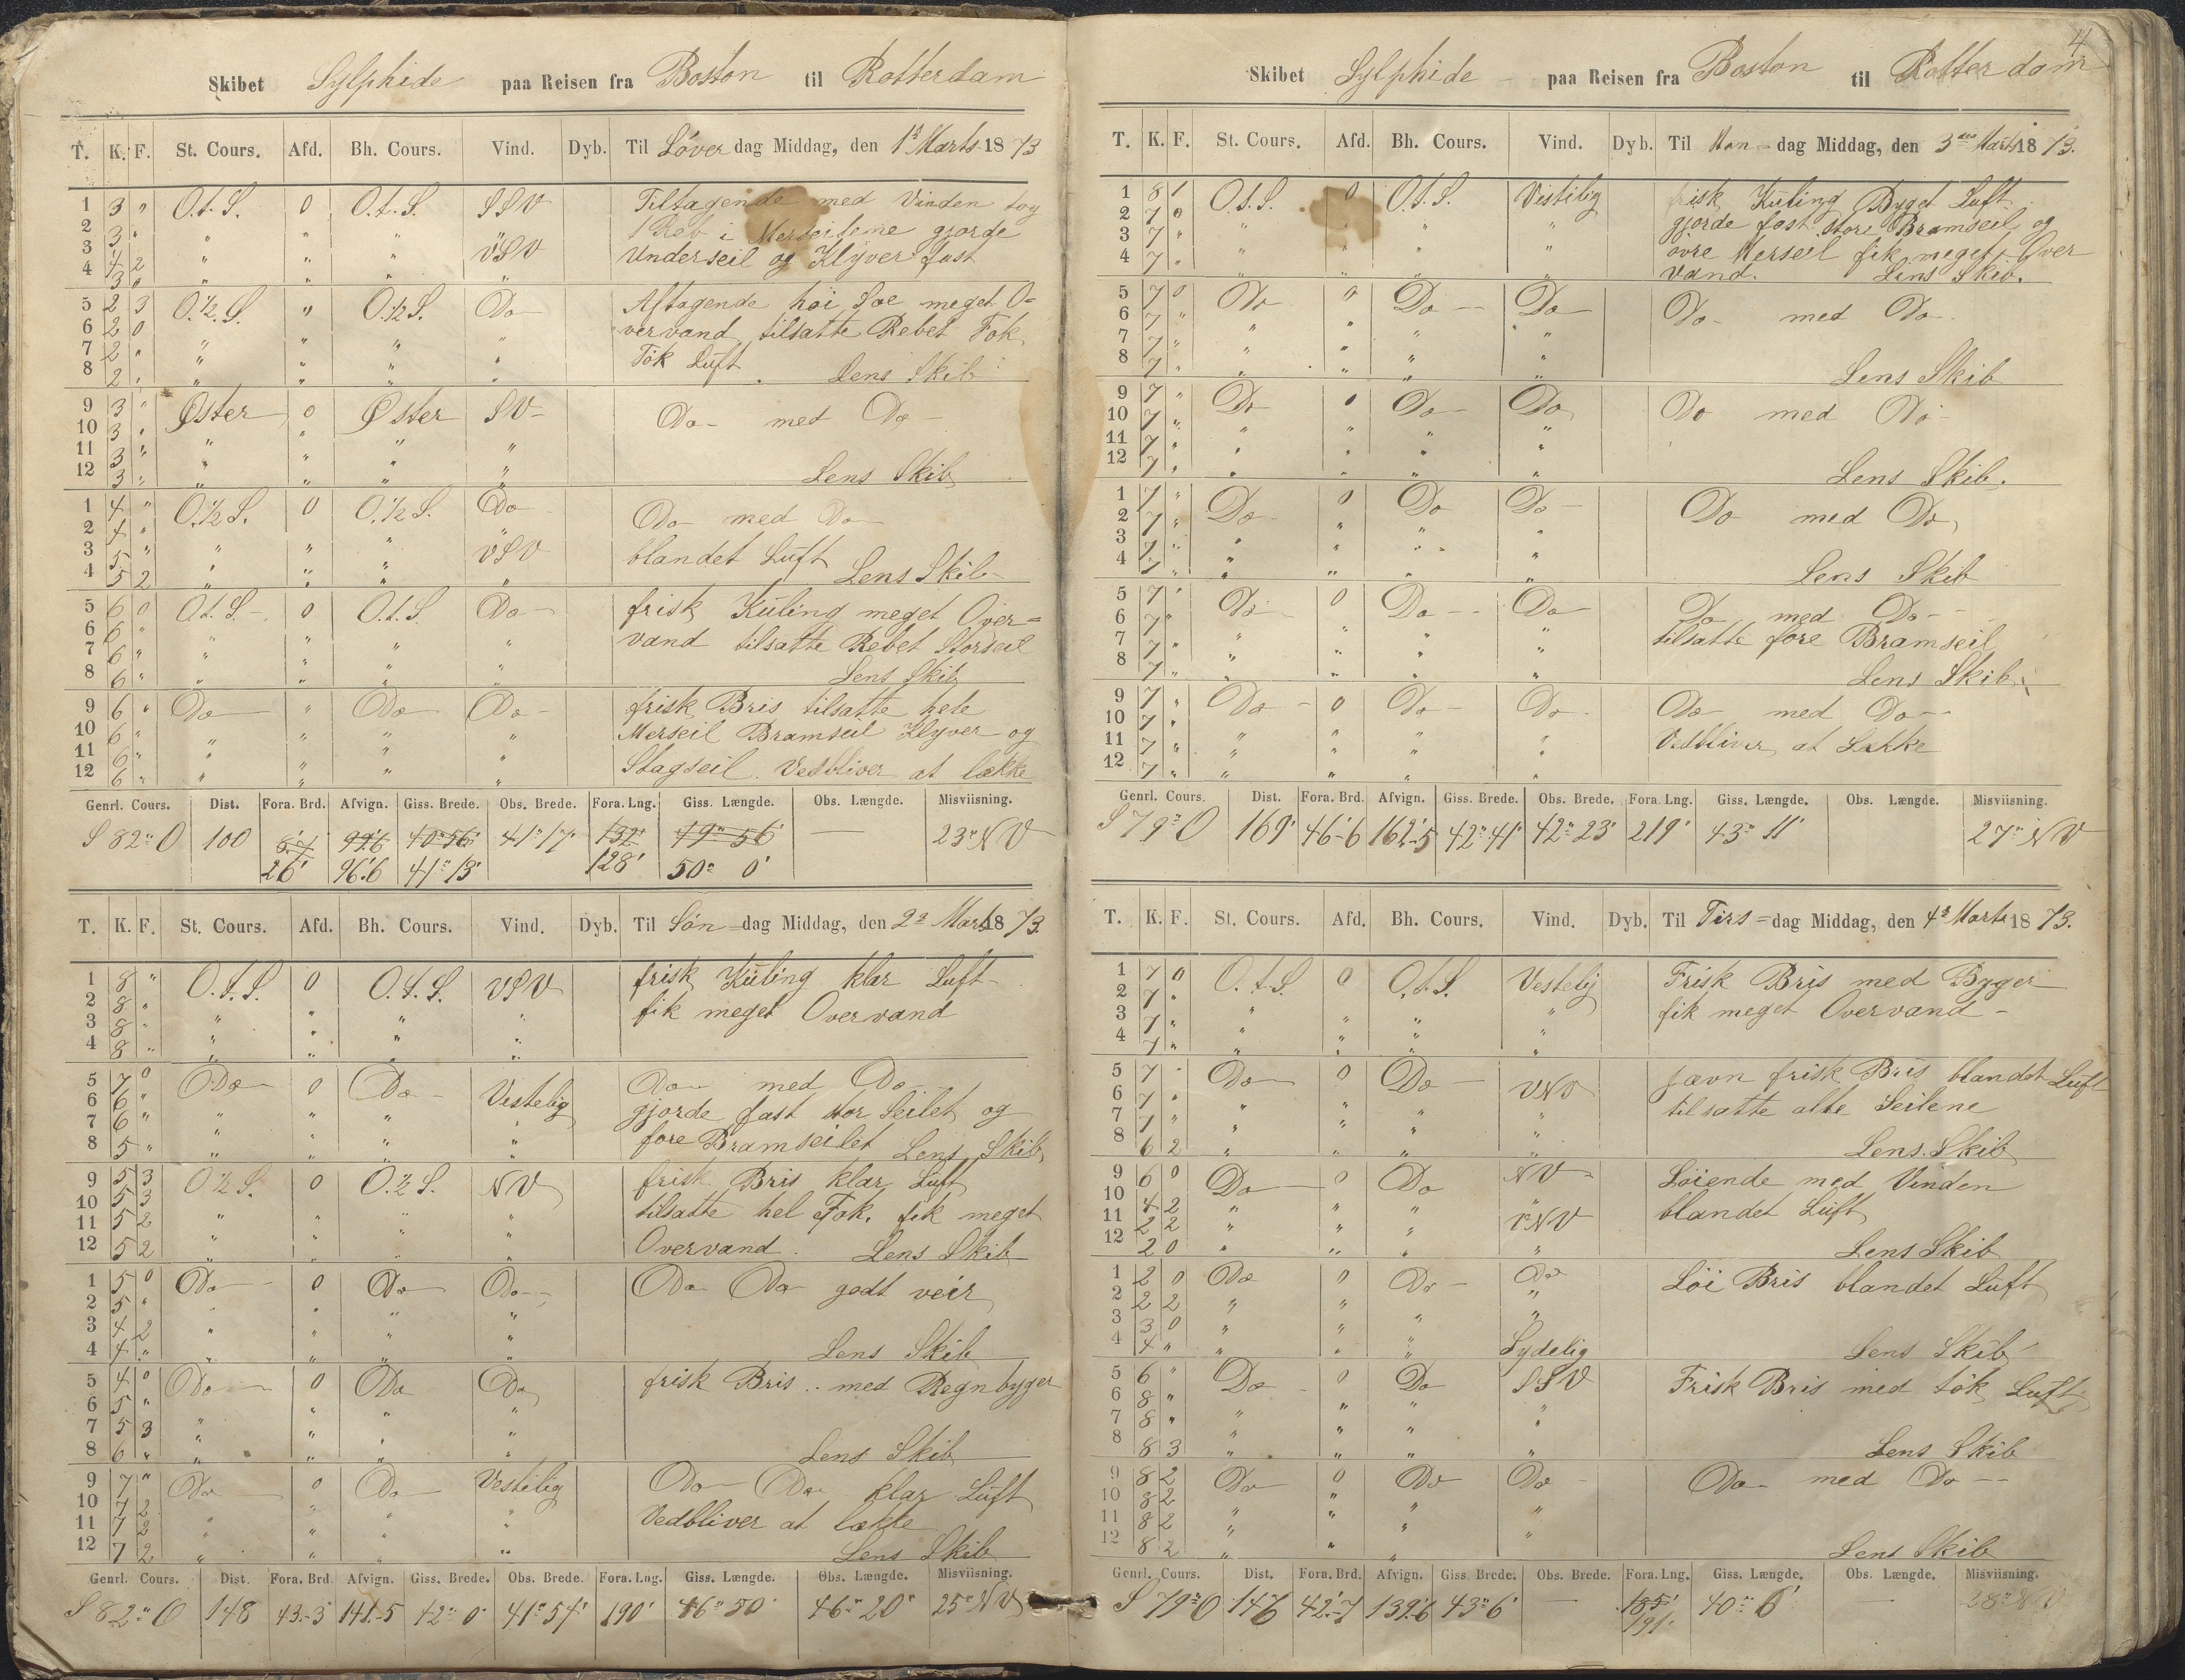 Skibet Sylphide paa Reisen fra Boston til Rotterdam
T. K. F. St. Cours. Afd. Bh. Cours. Vind. Dyb. Til Löver dag Middag, den 1ste Marts 1873
1 3 " O.t.S. 0 O.t.S. SSV Tiltagende med Vinden tog
2 3 " " " " 1 Reb i Merseilene gjorde
3 4 2 " " " VSV Underseil og Klyver fast
4 3 0 " " " "
5 2 3 O.½.S. " O.½S. Do Aftagende höi Söe meget O=
6 2 0 vervand tilsatte Rebet Fok
7 2 " " " " " Tök Luft
8 2 " " " " " Lens Skib
9 3 " Öster 0 Öster SV Do med Do
10 3 " "
11 3 " " " " "
12 3 " " " " " Lens Skib
1 4 " O.½S. 0 O.½S. Do Do med Do
2 4 "
3 5 " " " " VSV blandet Luft
4 5 2 " " " " Lens Skib
5 6 0 O.t.S. 0 O.t.S. Do frisk Kuling meget Over=
6 6 " " " " " vand tilsatte Rebet Storseil
7 6 " " " " "
8 6 " " " " " Lens Skib
9 6 " Do " Do Do frisk Bris tilsatte hele
10 6 " " " " " Merseil Bramseil Klyver og
11 6 " " " "
12 6 " " " " " Stagseil. Vedbliver at lække
Genrl. Cours. Dist. Fora. Brd. Afvign. Giss. Brede. Obs. Brede. Fora. Lng. Giss. Længde. Obs. Længde. Misviisning.
S 82° O 100 8.7 99.6 40°56' 41°17' 132' 49°56' 23° NV
26' 96.6 41°13' 128' 50° 0'
T. K. F. St. Cours. Afd. Bh. Cours. Vind. Dyb. Til Sön dag Middag, den 2den Marts 1873.
1 8 " O.t.S. 0 O.t.S. VSV frisk Kuling klar Luft
2 8 " fik meget Overvand
3 8 " " " " "
4 8 " " " " "
5 7 0 Do 0 Do Vestelig Do med Do
6 6 " gjorde fast stor Seilet og
7 6 " " " " "
8 5 " " " " " fore Bramseilet Lens Skib
9 5 3 O½S. 0 O.½S. NV frisk Bris klar Luft
10 5 3 tilsatte hel Fok. fik meget
11 5 2 " " " "
12 5 2 " " " " Overvand. Lens Skib
1 5 0 Do 0 Do Do Do Do godt veir
2 5 " " " " "
3 4 2 " " " "
4 4 " " " " " Lens Skib
5 4 0 Do 0 Do Do frisk Bris .. med Regnbyger
6 5 " " " "
7 5 3 " " " "
8 6 " " " " " Lens Skib
9 7 " Do 0 Do Vestelig Do Do klar Luft
10 7 2 "
11 7 2 " " " " Vedbliver at lække
12 7 2 " " " " Lens Skib
Genrl. Cours. Dist. Fora. Brd. Afvign. Giss. Brede. Obs. Brede. Fora. Lng. Giss. Længde. Obs. Længde. Misviisning.
S 82° O 148 43.3 141.5 42° 0' 41°54' 190' 46°50' 46°20' 25° NV
4
Skibet Sylphide paa Reisen fra Boston til Rotterdam
T. K. F. St. Cours. Afd. Bh. Cours. Vind. Dyb. Til Man = dag Middag, den 3die Marts 1873.
1 8 1 O.t.S. 0 O.t.S. Vestelig frisk Kuling Byget Luft
2 7 0 gjorde fast store Bramseil og
3 7 " " " " " övre Merseil fik meget Over
4 7 " " " " " vand. Lens Skib.
5 7 0 Do 0 Do Do Do med Do
6 7 "
7 7 " " " " "
8 7 " " " " " Lens Skib
9 7 " Do 0 Do Do Do med Do
10 7 " " " " "
11 7 " " " " "
12 7 " " " " " Lens Skib.
1 7 " Do 0 Do Do Do med Do
2 7 "
3 7 " " " " "
4 7 " " " " " Lens Skib
5 7 " Do 0 Do Do Do med Do
6 7 " tilsatte fore Bramseil
7 7 " " " " "
8 7 " " " " " Lens Skib.
9 7 " Do 0 Do Do Do med Do
10 7 " Vedbliver at Lække
11 7 " " " " "
12 7 " " " " "
Genrl. Cours. Dist. Fora. Brd. Afvign. Giss. Brede. Obs. Brede. Fora. Lng. Giss. Længde. Obs. Længde. Misviisning.
S 79° O 169' 46.6 162.5 42°41' 42°23' 219' 43° 11' 27° NV
T. K. F. St. Cours. Afd. Bh. Cours. Vind. Dyb. Til Tirs = dag Middag, den 4de Marts 1873.
1 7 0 O.t.S. 0 O.t.S. Vestelig Frisk Bris med Byger
2 7 " fik meget Overvand
3 7 " " " " "
4 7 " " " " "
5 7 " Do 0 Do VNV jævn frisk Bris blandet Luft
6 7 " tilsatte alle Seilene
7 7 " " " " "
8 6 2 " " " " Lens Skib
9 6 0 Do 0 Do NV Löiende med Vinden
10 4 2 " " " " blandet Luft
11 2 2 " " " VNV
12 2 0 " " " " Lens Skib
1 2 0 Do 0 Do Do Löi Bris blandet Luft
2 2 2 " " "
3 3 0 " " " "
4 4 " " " " Sydelig Lens Skib
5 6 " Do 0 Do SSV Frisk Bris med tök Luft
6 8 " " "
7 8 " " " " "
8 8 3 " " " " Lens Skib
9 8 2 Do 0 Do Do Do med Do
10 8 2 "
11 8 2 " " " "
12 8 2 " " " Lens Skib
Genrl. Cours. Dist. Fora. Brd. Afvign. Giss. Brede. Obs. Brede. Fora. Lng. Giss. Længde. Obs. Længde. Misviisning.
S 79° O 146 42.7 139.6 43°6' — 185' 40° 6' — 28° NV
191'